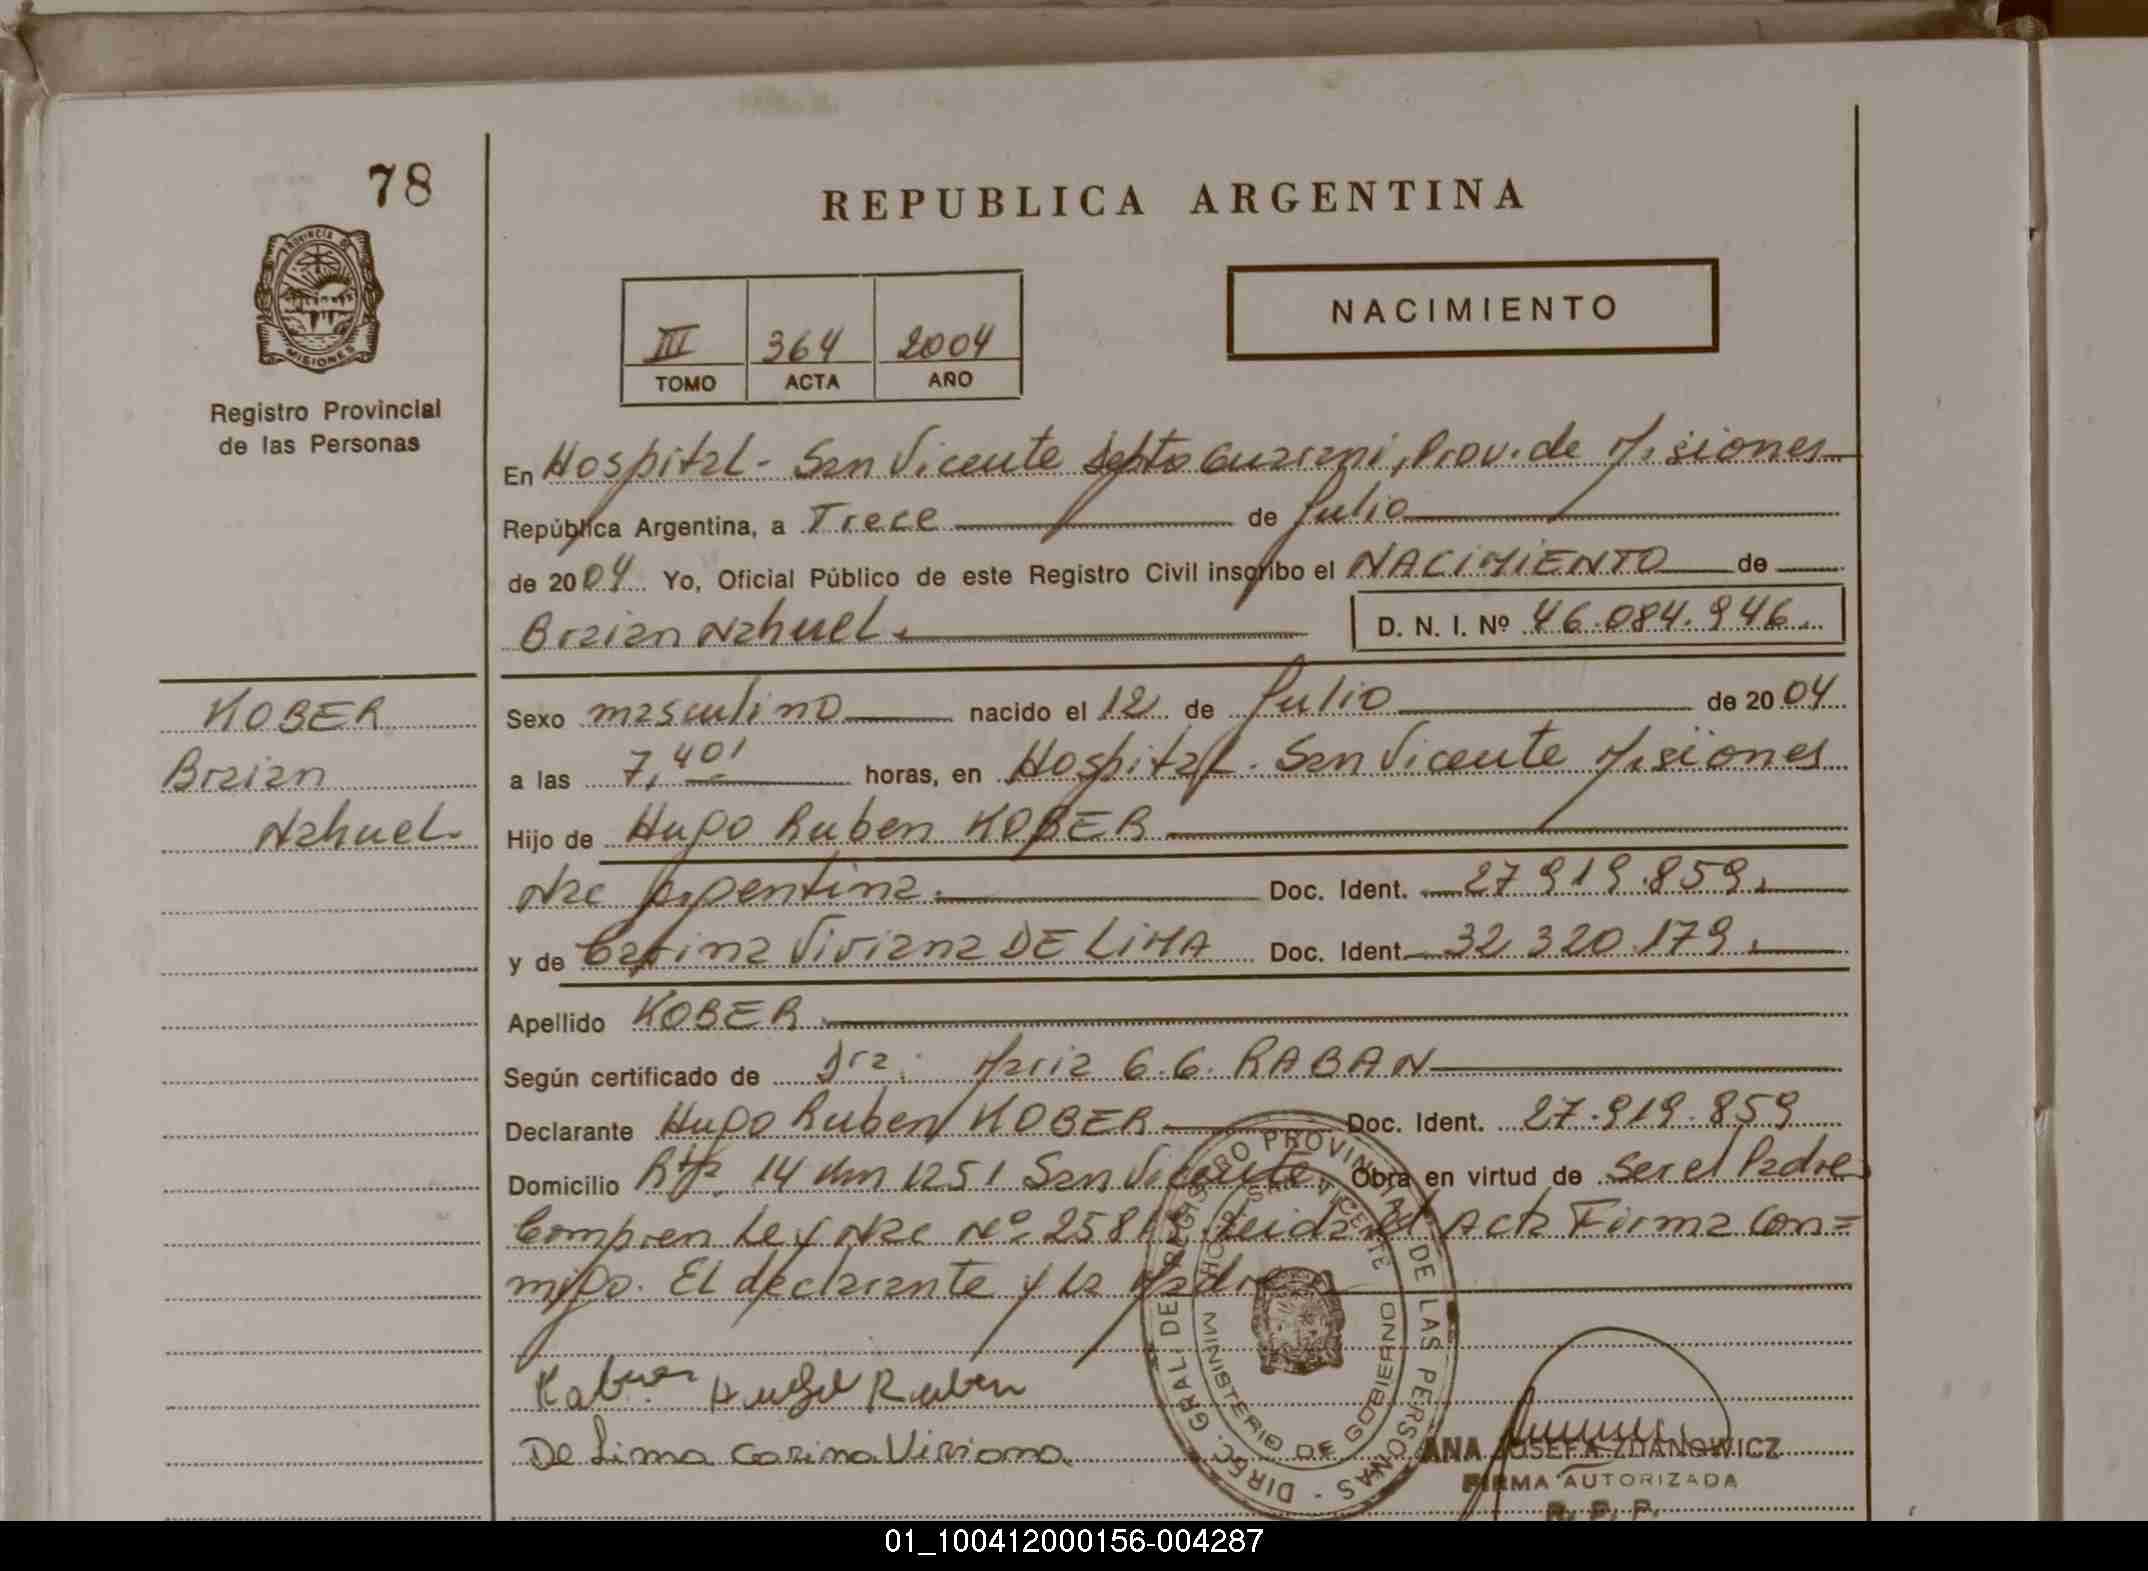 78
REPUBLICA ARGENTINA
PROVINCIA DE
MISIONES
NACIMIENTO
III 364 2004
TOMO ACTA AÑO
Registro Provincial
de las Personas
En Hospital - San Vicente Depto Guarani, Prov. de Misiones
República Argentina, a Trece de Julio
de 2004 Yo, Oficial Público de este Registro Civil inscribo el NACIMIENTO de
Braian Nahuel. D. N. I. Nº 46.084.946.
KOBER
Braian
Nahuel
Sexo masculino nacido el 12 de Julio de 2004
a las 7,40' horas, en Hospital. San Vicente Misiones
Hijo de Hugo Ruben KOBER
Nac Argentina. Doc. Ident. 27.919.859.
y de Carina Viviana DE LIMA Doc. Ident. 32.320.179.
Apellido KOBER
Según certificado de Dra. Maria G. G. RABAN
Declarante Hugo Ruben KOBER Doc. Ident. 27.919.859
Domicilio Rta. 14 Km 1251 San Vicente Obra en virtud de Ser el Padre
Comp. en Ley Nac Nº 25819. Leida el Acta Firma Con=
migo. El declarante y la Madre
Hugo Ruben
De Lima Carina Viviana
DIREC. GRAL. DE REGISTRO PROVINCIAL DE LAS PERSONAS
SAN VICENTE
MINISTERIO DE GOBIERNO
ANA JOSEFA ZDANOWICZ
FIRMA AUTORIZADA
R. P. P.
01_100412000156-004287